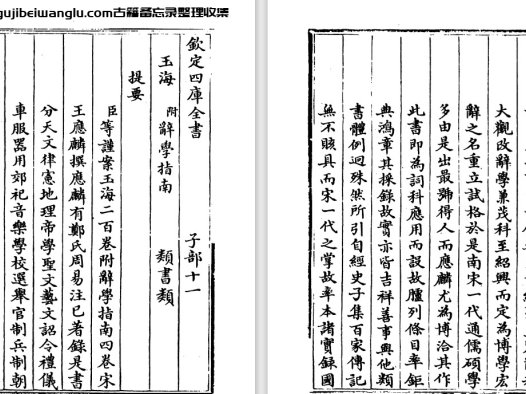 gujibeiwanglu.com古籍备忘录整理收集
欽定四庫全書
子部十一
玉海附辭學指南
類書類
提要
臣等謹案玉海二百卷附辭學指南四卷宋
王應麟撰應麟有鄭氏周易注已著錄是書
分天文律憲地理帝學聖文藝文詔令禮儀
車服器用郊祀音樂學校選舉官制兵制朝
大觀改辭學兼茂科至紹興而定為博學宏
辭之名重立試格於是南宋一代通儒碩學
多由是出最號得人而應麟尤為博洽其作
此書即為詞科應用而設故臚列條目率鉅
典鴻章其採錄故實亦皆吉祥善事與他類
書體例迥殊然所引自經史子集百家傳記
無不賅具而宋一代之掌故率本諸實錄國